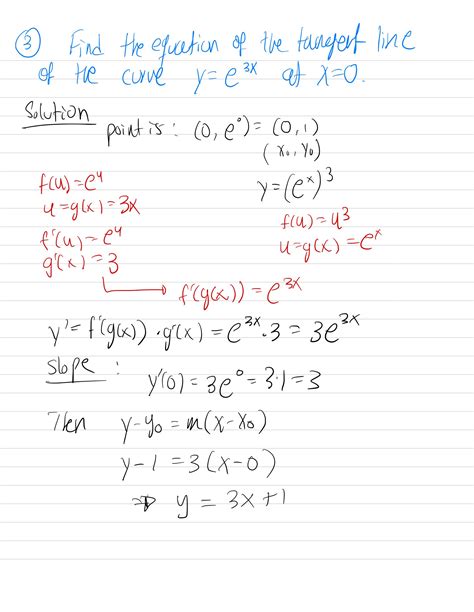 ③ Find the equation of the tangent line
of the curve y=e³ˣ at x=0.
Solution
point is: (0, e⁰) = (0, 1)
(x₀, y₀)
f(u)=eᵘ
u=g(x)=3x
f'(u)=eᵘ
g'(x)=3
y=(eˣ)³
f(u)=u³
u=g(x)=eˣ
f'(g(x))=e³ˣ
y'=f'(g(x))·g'(x)=e³ˣ·3=3e³ˣ
slope :
y'(0)=3e⁰=3·1=3
Then y-y₀=m(x-x₀)
y-1=3(x-0)
⇒ y=3x+1